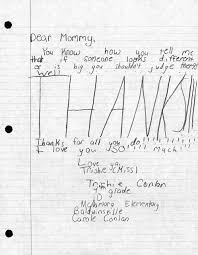 Dear Mommy,
You know how you tell me
that if someone looks different
or is big you shouldn't judge them!!!
Well
THANKS!!!
Thanks for all you do!!!!!!
I love you SO!!! much!!!
Love you,
Trishie Conlan
grade
McNamara Elementary
Baldwinsville
Carole Conlan